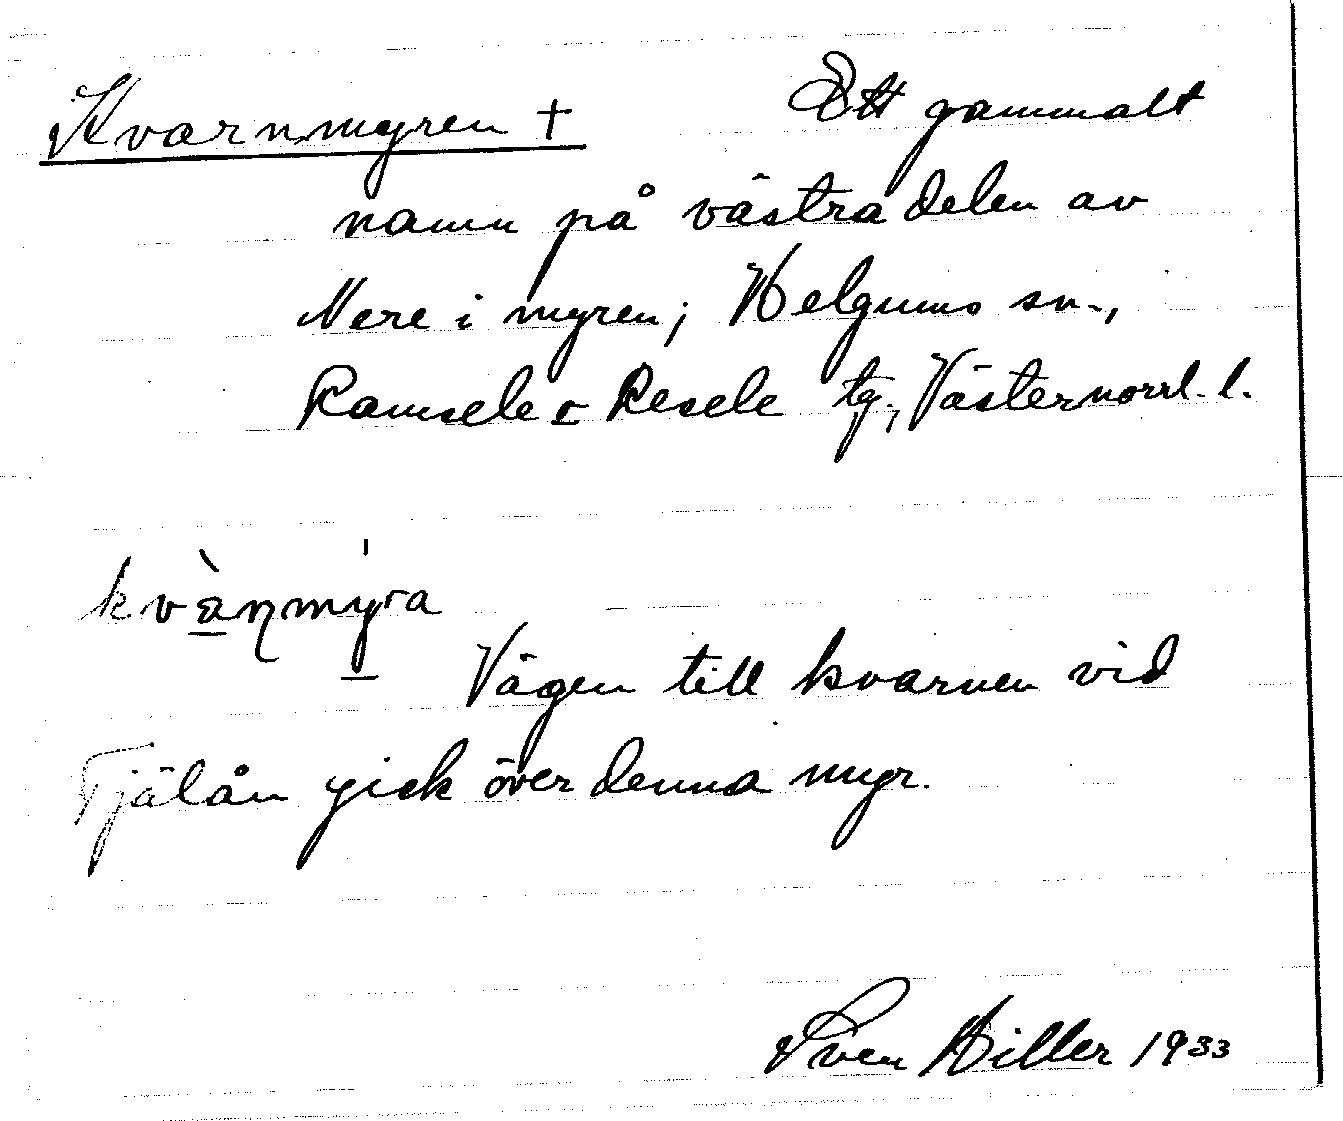 Kvarnmyren +
Ett gammalt
namn på västra delen av
Nere i myren; Helgums sn.,
Ramsele o Resele tg., Västernorrl. l.
kvànmýra
Vägen till kvarnen vid
Tjälån gick över denna myr.
Sven Hiller 1933